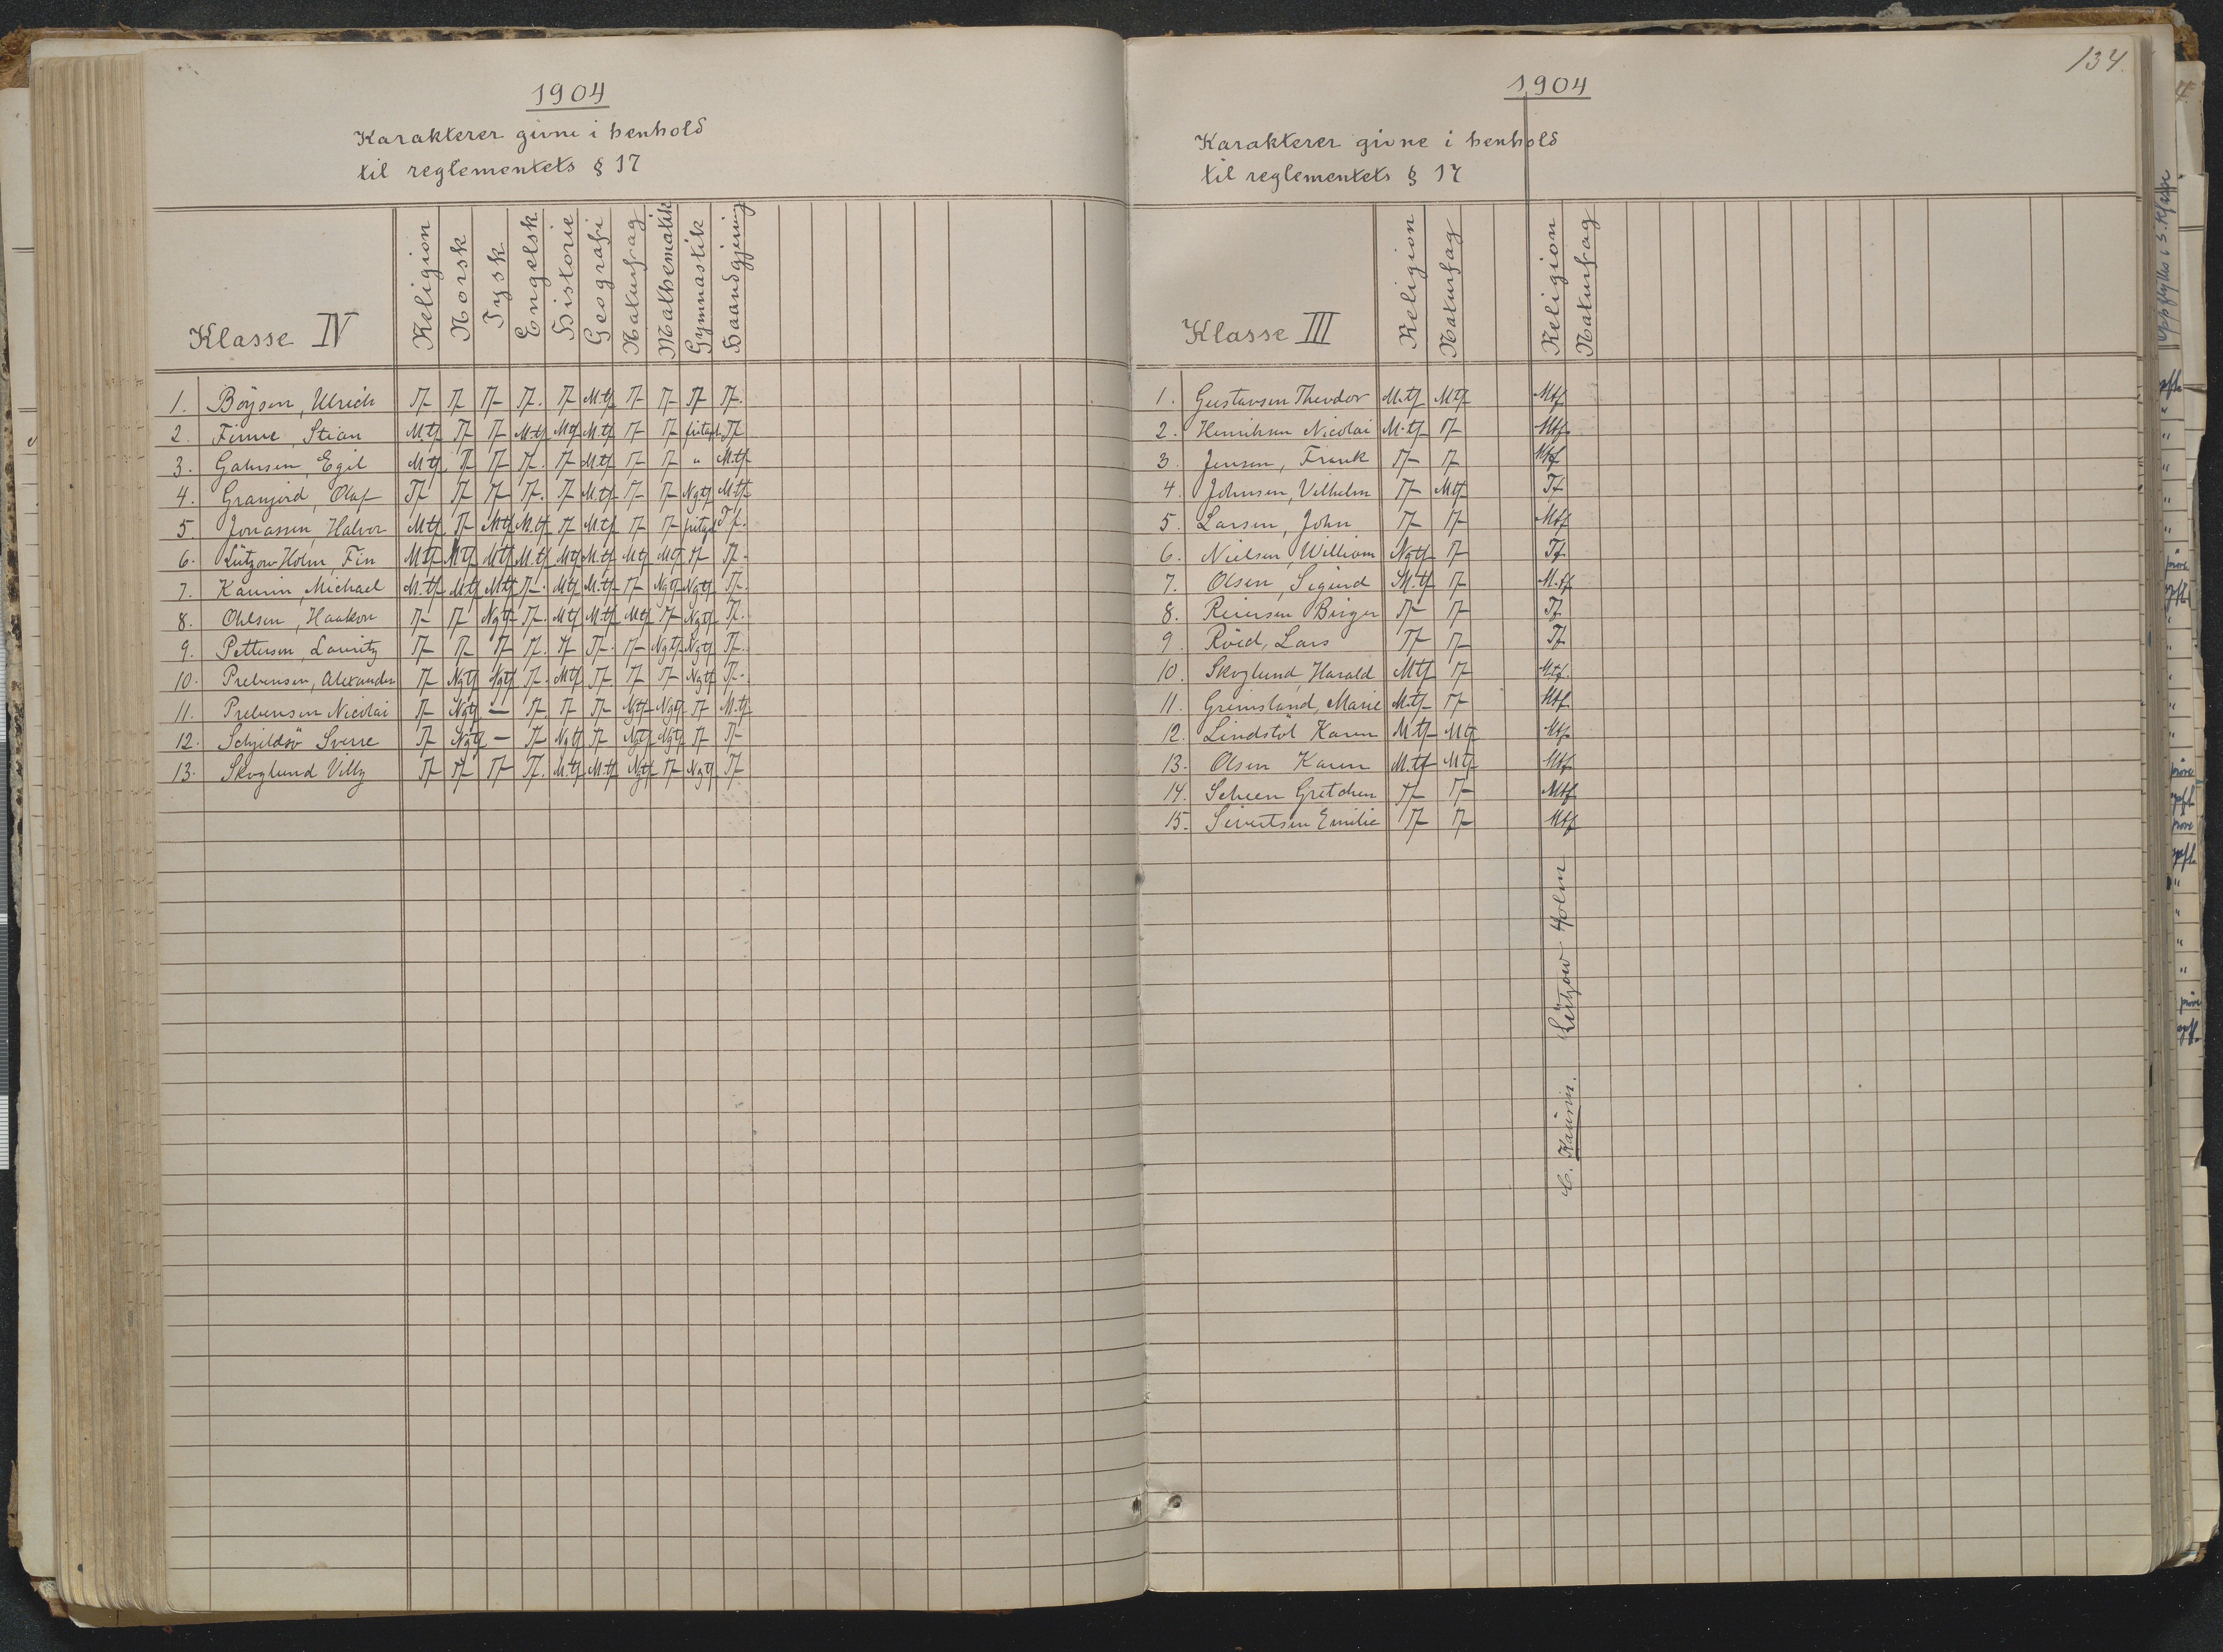 1904
Karakterer givne i henhold
til reglementets § 17
Klasse IV Religion Norsk Tysk Engelsk Historie Geografi Naturfag Mathematik Gymnastik Haandgjerning
1. Boysen, Ulrich Tf Tf Tf Tf. Tf M.tf Tf Tf Tf Tf.
2. Finne, Stian Mtf Tf Tf M.tf Mtf M.tf Tf Tf fritagt Tf
3. Galmsen, Egil Mtf Tf Tf Tf. Tf Mtf Tf Tf " Mtf
4. Granjord, Olaf Tf Tf Tf Tf. Tf M.tf Tf Tf Ngtf Mtf
5. Jonassen, Halvor Mtf Tf Mtf M.tf Tf M.tf Tf Tf fritagt Tf.
6. Lützow-Holm, Fin Mtf Mtf Mtf M.tf Mtf M.tf Mtf Mtf Tf Tf.
7. Kaurin, Michael M.tf Mtf Mtf Tf. Mtf M.tf Tf Ngtf Ngtf Tf.
8. Ohlsen, Haakon Tf Tf Ngtf Tf. Mtf M.tf Mtf Tf Ngtf Tf.
9. Pettersen, Lauritz Tf Tf Tf Tf. Tf Tf. Tf Ngtf Ngtf Tf.
10. Prebensen, Alexander Tf Ngtf Ngtf Tf. Mtf Tf. Tf Tf Ngtf Tf.
11. Prebensen Nicolai Tf Ngtf — Tf. Tf Tf Ngtf Ngtf Tf M.tf
12. Schjildsö Sverre Tf Ngtf — Tf Ngtf Tf Ngtf Ngtf Tf Tf
13. Skoglund Villy Tf Tf Tf Tf. M.tf M.tf Ngtf Tf Ngtf Tf
134.
1904
Karakterer givne i henhold
til reglementets § 17
Klasse III Religion Naturfag Religion Naturfag
1. Gustavsen Theodor M.tf Mtf Mtf
2. Henriksen Nicolai M.tf Tf Mtf
3. Jensen, Frank Tf Tf Mtf
4. Johnsen, Vilhelm Tf Mtf Tf
5. Larsen, John Tf Tf Mtf
6. Nielsen, William Ngtf Tf Tf
7. Olsen, Sigurd M.tf Tf M.tf
8. Reiersen Birger Tf Tf Tf
9. Röed, Lars Tf Tf Tf
10. Skoglund, Harald Mtf Tf Mtf.
11. Grimsland, Marie M.tf Tf Mtf
12. Lindstöl Karen Mtf Mtf Mtf
13. Olsen Karen M.tf Mtf Mtf
14. Scheen Gretchen Tf Tf Mtf
15. Sivertsen Emilie Tf Tf Mtf
C. Kaurin. Lützow Holm